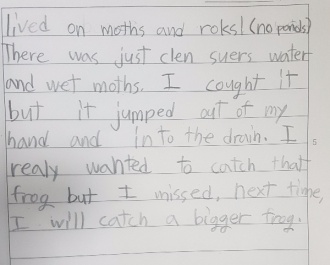 lived on moths and roks! (no ponds)
There was just clen suers water
and wet moths. I cought it
but it jumped out of my
hand and into the drain. I
realy wanted to catch that
frog but I missed, next time,
I will catch a bigger frog.